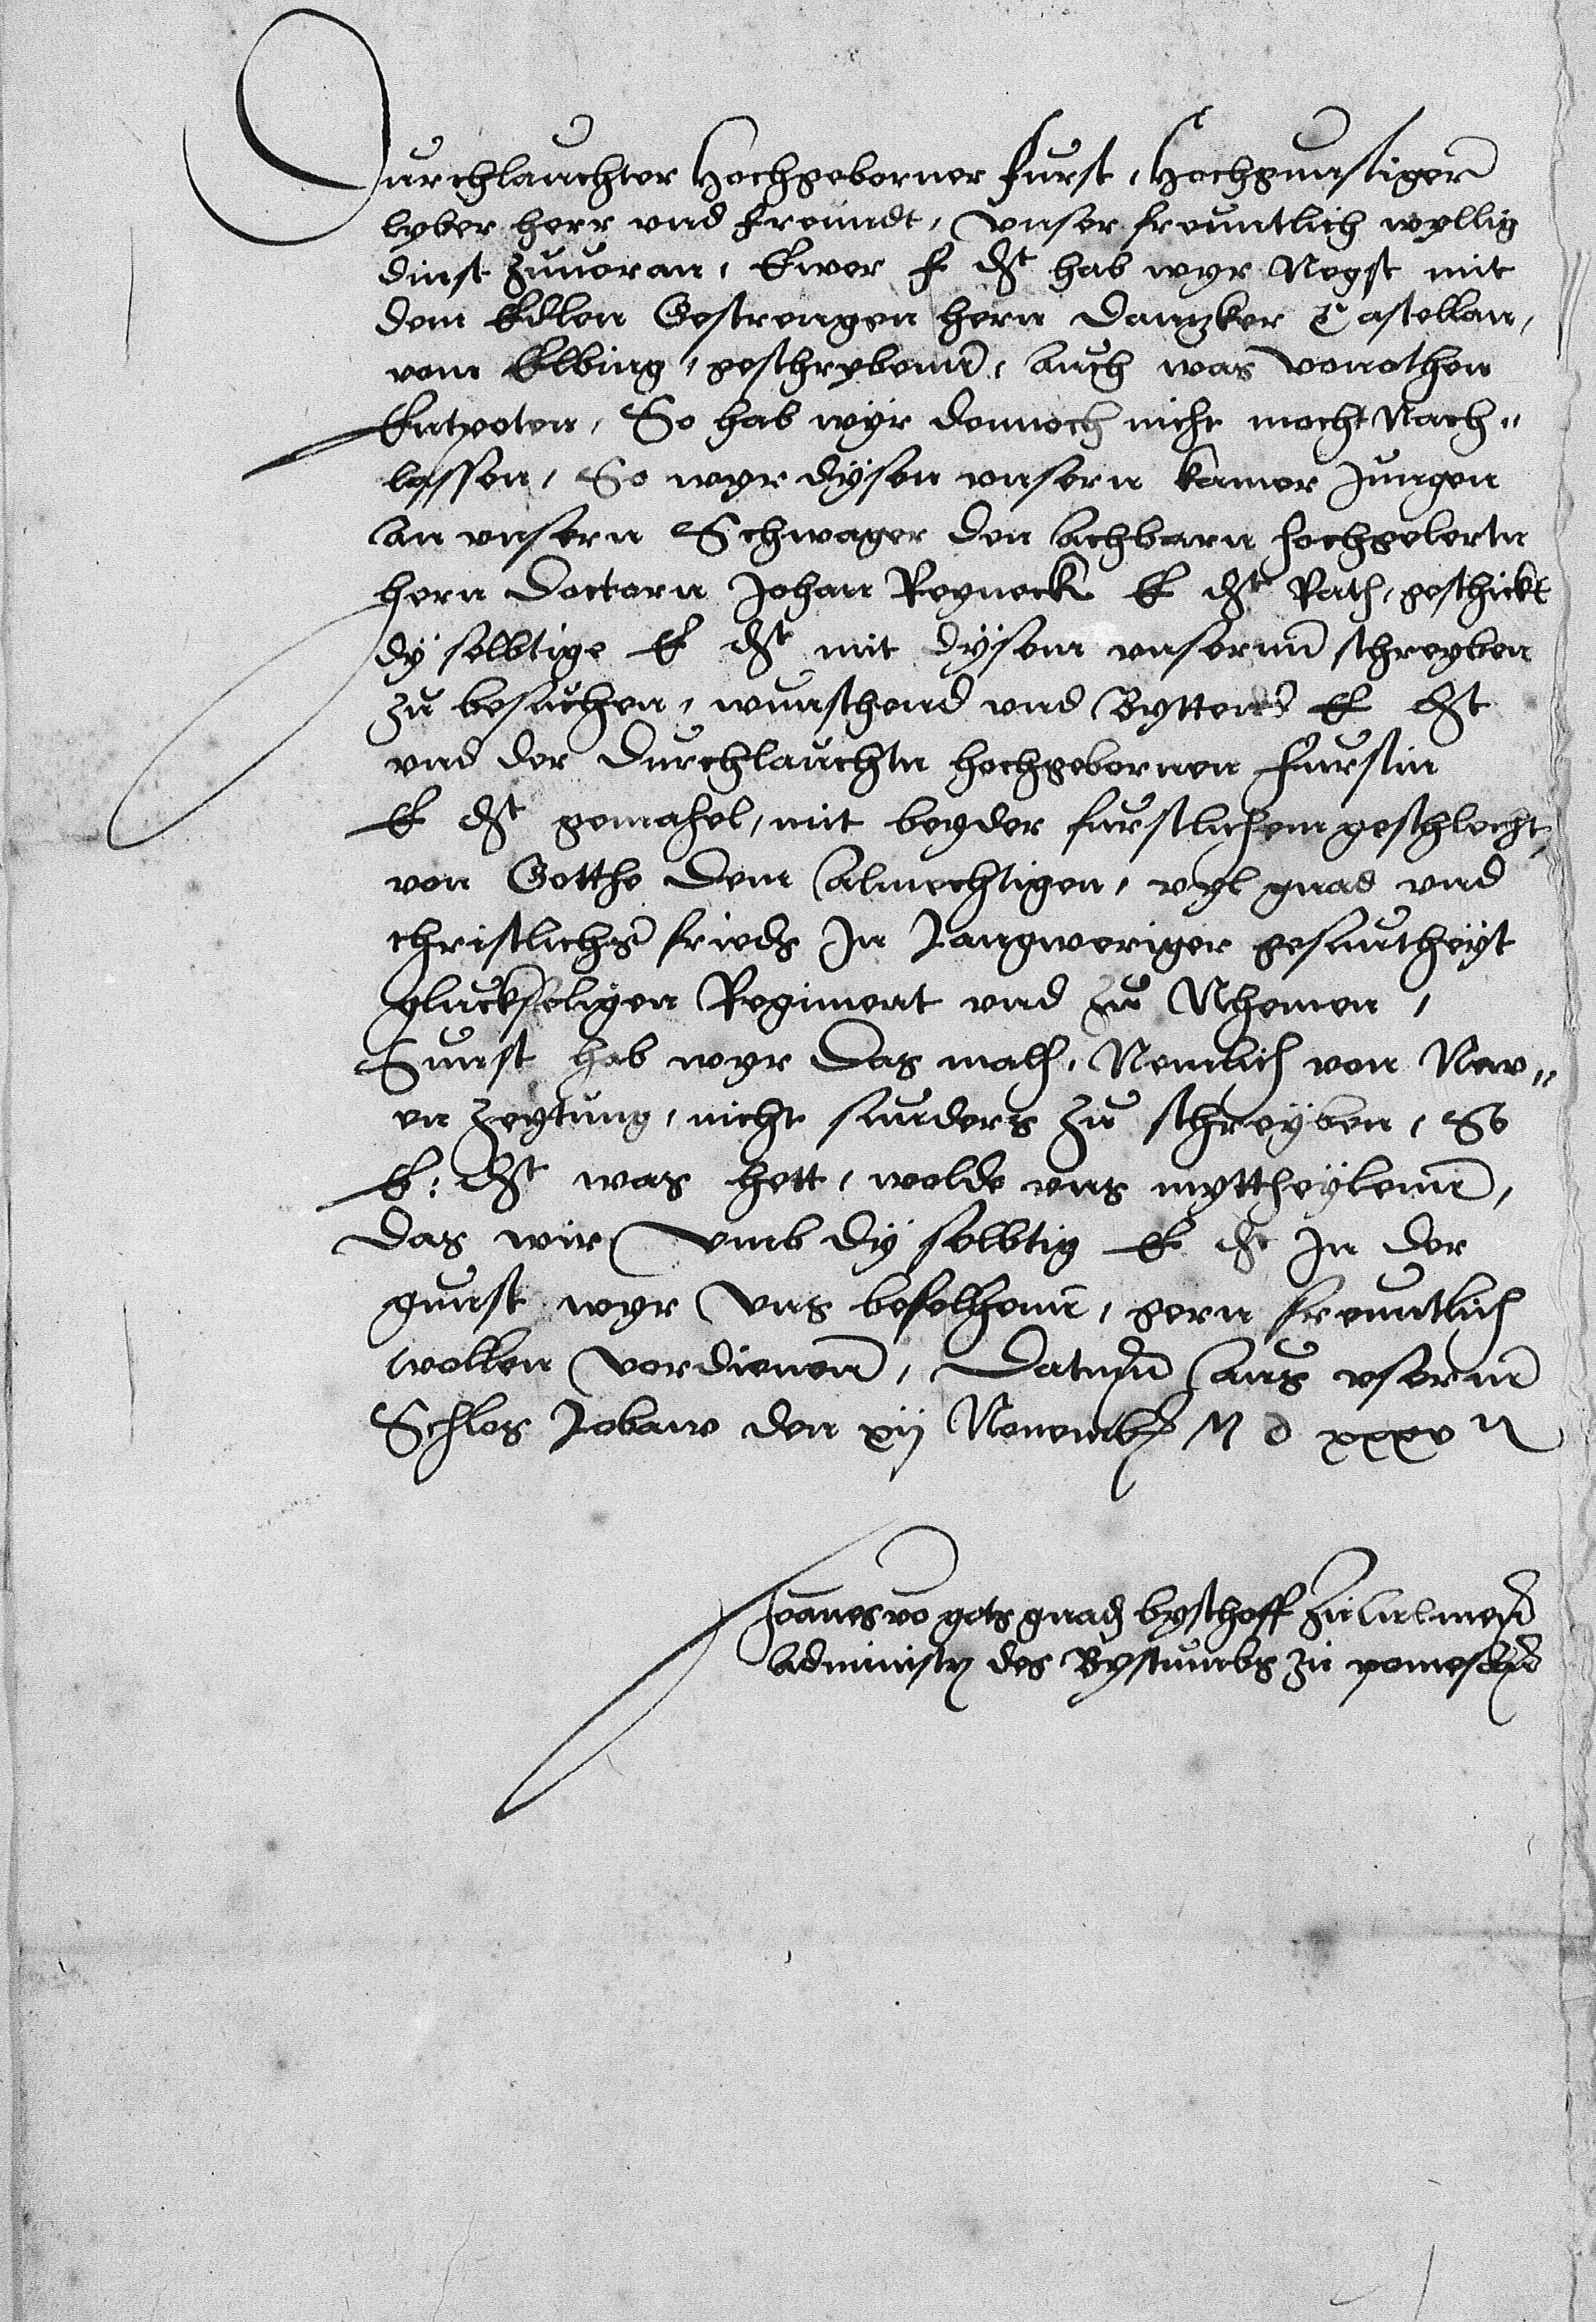 Durchlauchter Hochgeborner Furst, Hochgunstiger
lyber herr vnd Freundt, Vnser freuntlich wyllig
dinst zuuoran, Ewer F dt hab wyr Negst mit
dem Edlen Gestrengen hern Dantzker Castellan,
vom Elbing, geschrybenn, Auch was vonothen
Entpoten, So hab wyr dennoch nicht mocht Nach„
lassen, So wyr dysen vnsern kamer Jungen
An vnsern Schwager den Achbarn hochgelertn
hern Doctorn Johan Reyneck E dt Rath, geschickt
dy selbtige E dt mit dysem vnsernn schreyben
zu besuchen, wunschend vnd Byttend E dt
vnd der Durchlauchtn hochgebornen Furstin
E dt gemahel, mit beyder furstlichem geschlecht,
von Gotthe dem Almechtigen, vyl gnad vnd
christlichs frieds In Langweriger gesuntheyt
gluckseligen Regiment vnd zu Nhemen,
Sunst hab wyr das malh, Nemlich von New„
en Zeytung, nicht sunders zu schreyben, So
E: dt was hett, wolde vns myttheylenn,
das wir Vmb dy selbtig E dt In der
gunst wyr Vns befelhenn, gern freuntlich
wollen Vordienenn, Datum Aus vsernn
Schlos Lobaw den xij Nouemb M d xxxv
Joannes vo gots gnad byschoff zu Culmen
Administr des Bystumbs zu pomesan